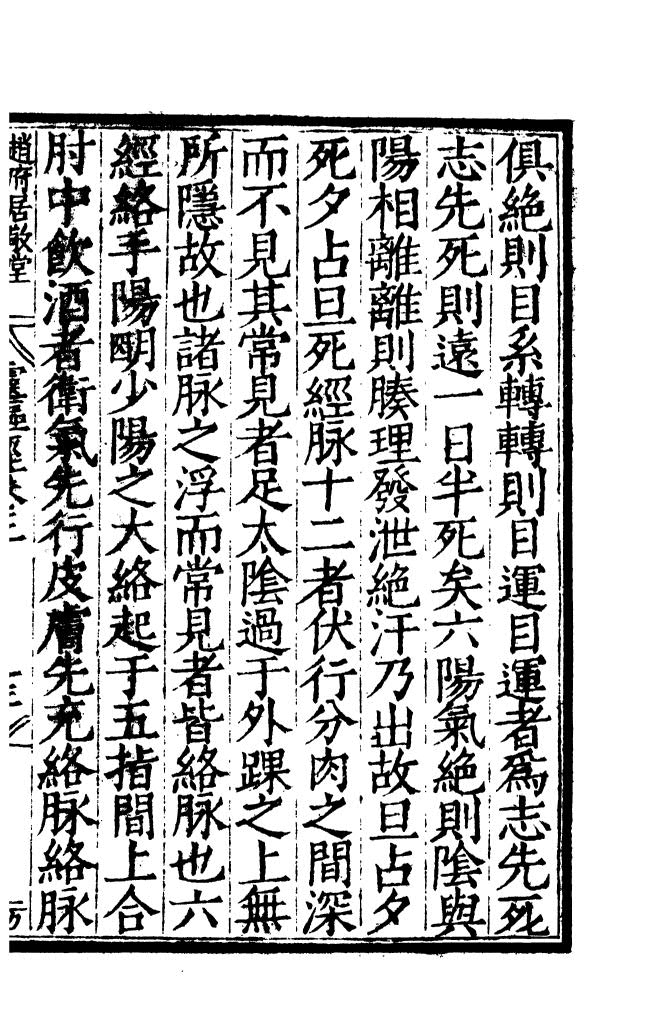 俱絶則目系轉轉則目運目運者爲志先死
志先死則遠一日半死矣六陽氣絶則陰與
陽相離離則腠理發泄絶汗乃出故旦占夕
死夕占旦死經脉十二者伏行分肉之間深
而不見其常見者足太陰過于外踝之上無
所隱故也諸脉之浮而常見者皆絡脉也六
經絡手陽明少陽之大絡起于五指間上合
肘中飲酒者衛氣先行皮膚先充絡脉絡脉
趙府居敬堂